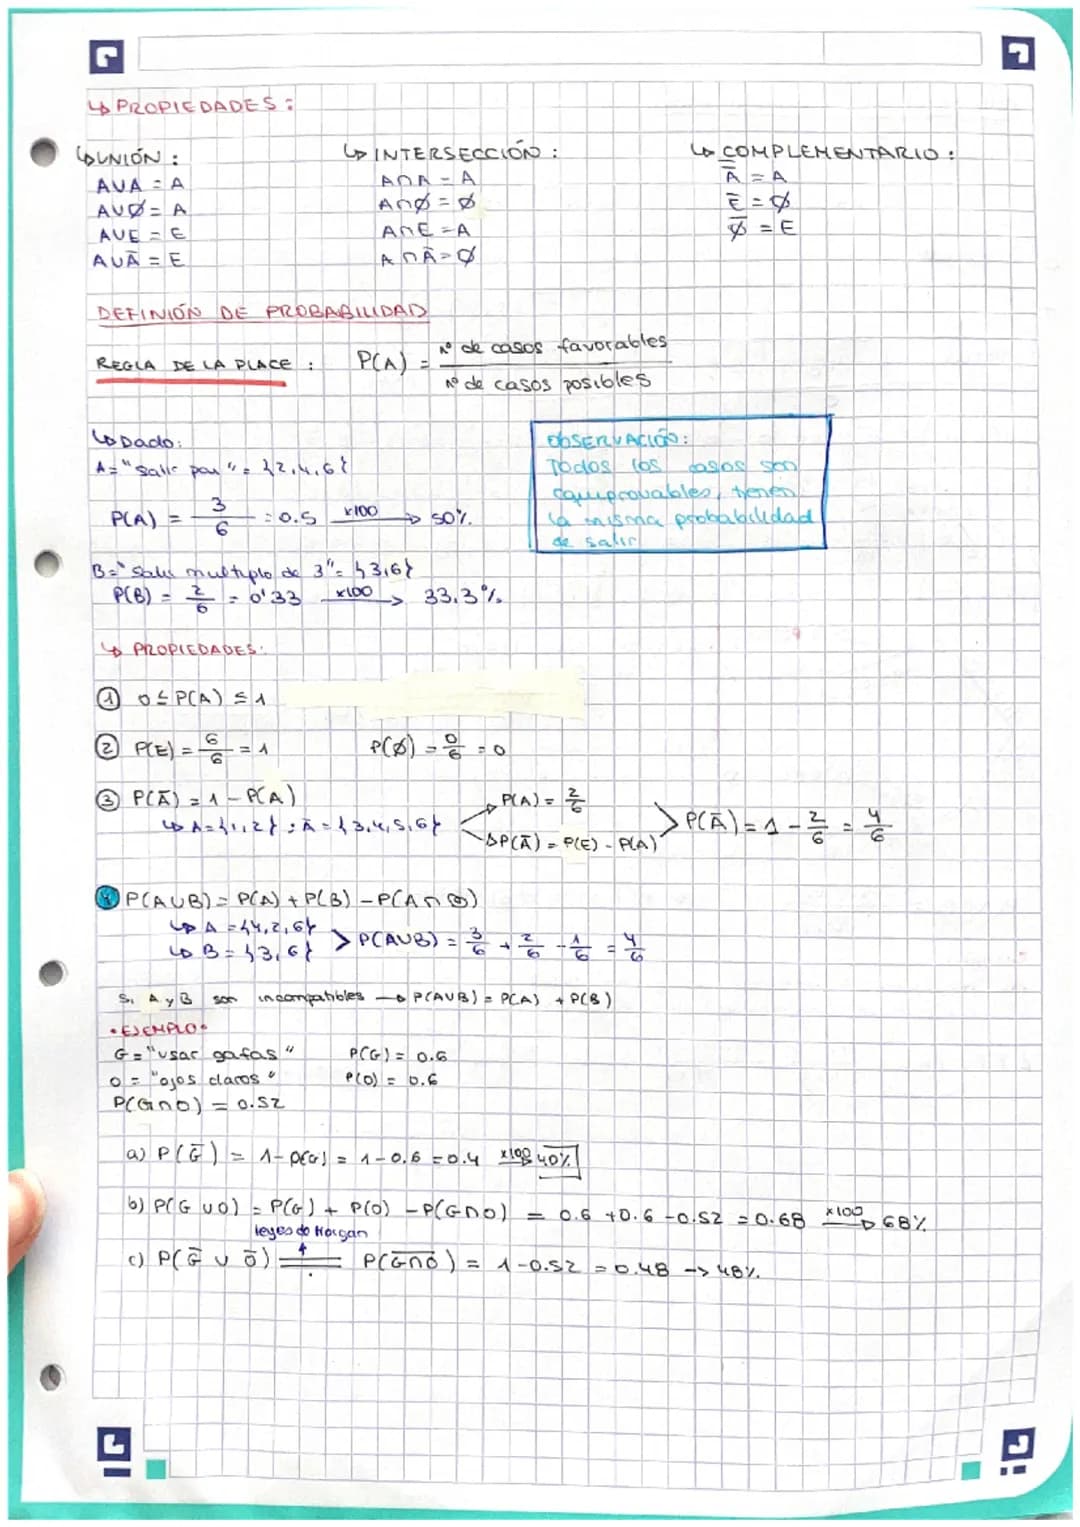 ↳ PROPIEDADES:
↳ UNIÓN:
A∪A = A
A∪Ø = A
A∪E = E
A∪Ā = E
↳ INTERSECCIÓN:
A∩A = A
A∩Ø = Ø
A∩E = A
A∩Ā = Ø
↳ COMPLEMENTARIO:
Ā̄ = A
Ē = Ø
Ø̄ = E
DEFINIÓN DE PROBABILIDAD
REGLA DE LA PLACE: P(A) = Nº de casos favorables / Nº de casos posibles
↳ Dado:
A = "Salir par" = {2,4,6}
P(A) = 3/6 = 0.5 x100 → 50%
OBSERVACIÓN:
Todos los casos son
equiprovables, tienen
la misma probabilidad
de salir
B = "Salir multiplo de 3" = {3,6}
P(B) = 2/6 = 0'33 x100 → 33.3%
↳ PROPIEDADES:
① 0 ≤ P(A) ≤ 1
② P(E) = 6/6 = 1 P(Ø) = 0/6 = 0
③ P(Ā) = 1 - P(A)
↳ A = {1,2} ; Ā = {3,4,5,6}
P(A) = 2/6
P(Ā) = P(E) - P(A)
> P(Ā) = 1 - 2/6 = 4/6
④ P(A∪B) = P(A) + P(B) - P(A∩B)
↳ A = {4,2,6}
↳ B = {3,6}
> P(A∪B) = 3/6 + 2/6 - 1/6 = 4/6
Si A y B son incompatibles → P(A∪B) = P(A) + P(B)
• EJEMPLO •
G = "usar gafas" P(G) = 0.6
O = "ojos claros" P(O) = 0.6
P(G∩O) = 0.52
a) P(Ḡ) = 1 - P(G) = 1 - 0.6 = 0.4 x100 40%
b) P(G∪O) = P(G) + P(O) - P(G∩O) = 0.6 + 0.6 - 0.52 = 0.68 x100 → 68%
leyes de Morgan
c) P(Ḡ ∪ Ō) = P(G∩O)‾ = 1 - 0.52 = 0.48 → 48%